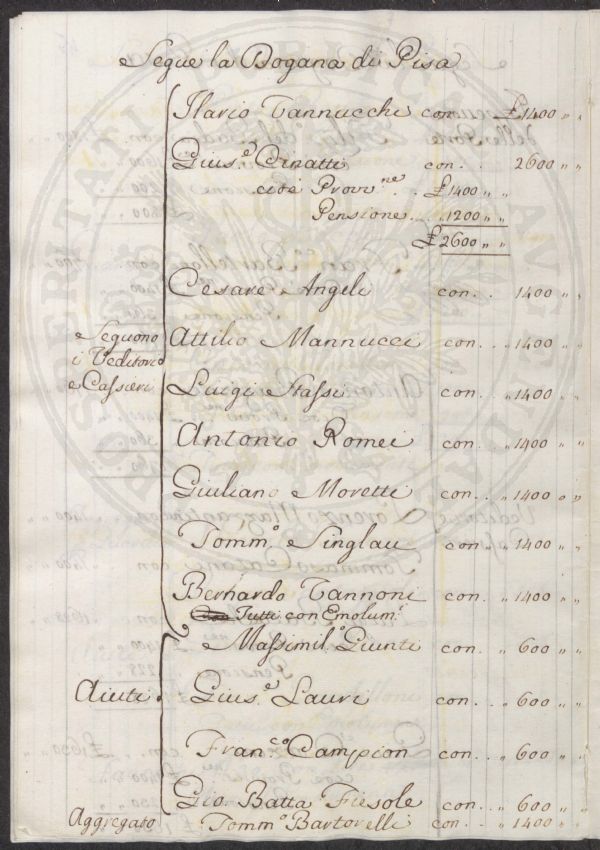 Segue la Dogana di Pisa
Ilario Vannucchi con. £ 1400 „ „
Gius.e Cinatti con. . 2600 „ „
cioè Provv.ne . . £ 1400 „ „
Pensione . . „ 1200 „ „
£ 2600 „ „
Cesare Angeli con. . 1400 „ „
Seguono
i Veditori
e Cassieri
Attilio Mannucci con. . „ 1400 „ „
Luigi Stassi con. . „ 1400 „ „
Antonio Romei con. . „ 1400 „ „
Giuliano Moretti con. . „ 1400 „ „
Tomm.o Singlau con. „ 1400 „ „
Bernardo Vannoni con. . „ 1400 „ „
Tutti con Emolum.i
Massimil.o Giunti con. . „ 600 „ „
Aiuti Gius.e Lauri con. . „ 600 „ „
Fran.co Campion con. . „ 600 „ „
Gio. Batta Fiesole con. . „ 600 „ „
Aggregato Tomm.o Bartorelli con. . „ 1400 „ „